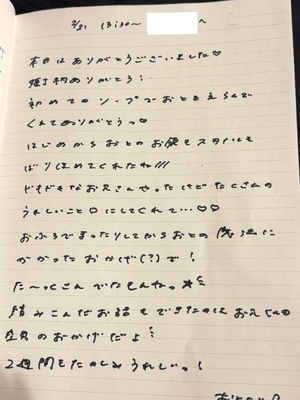 2/21 13:30〜 へ
本日はありがとうございました♡
指名ありがとう!
初めてのソープでおとをえらんで
くれてありがとうっ♡
はじめからおとのお顔もスタイルも
ばりほめてくれたね///
ドキドキなお兄さんやったけどたくさんの
うれしいこと口にしてくれて…♡♡
おふろでまったりしてからおとの に
かかったおかげ(?)で!
た〜っくさんでたもんねっ
踏みこんだお話もできたのはお兄さんの
空気のおかげだよ
2週間もたのしみうれしいっ!